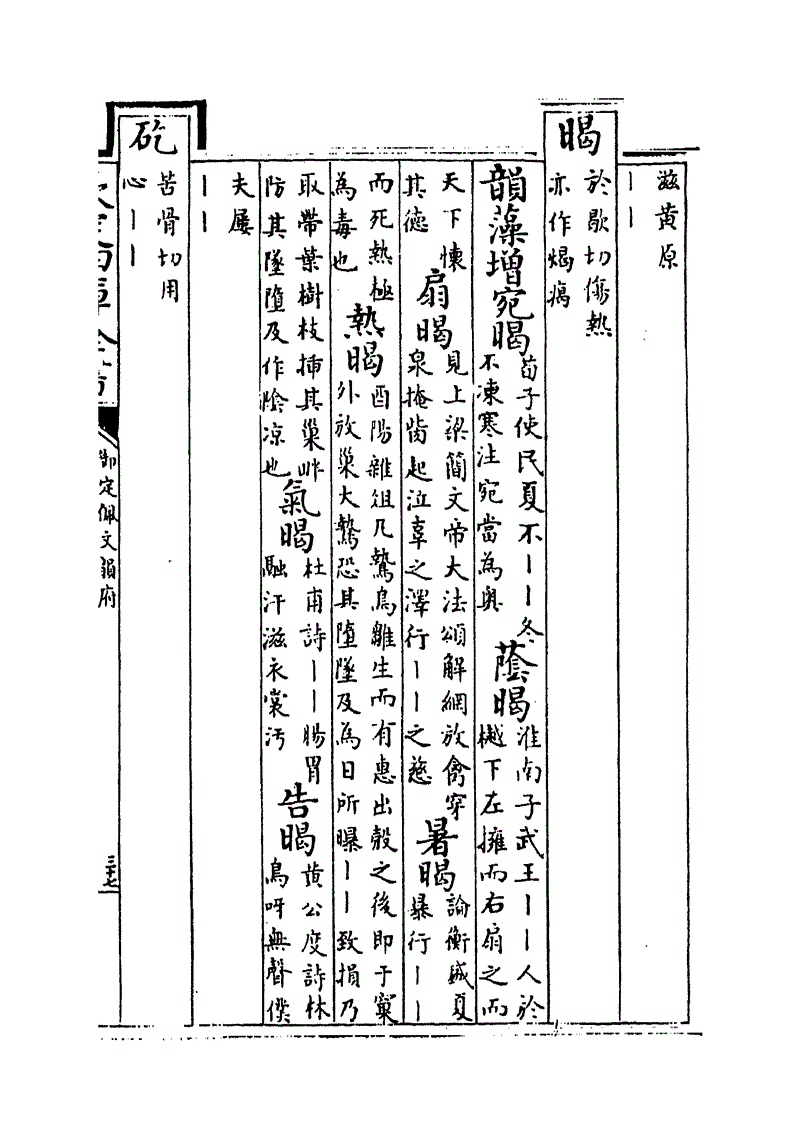 滋黄原
丨丨
暍
於歇切傷熱
亦作
韻藻增宛暍
荀子使民夏不丨丨冬
不凍寒注宛當為奥
蔭暍
淮南子武王丨丨人於
樾下左擁而右扇之而
天下懷
其德
扇暍
見上梁簡文帝大法頌解網放禽穿
泉掩胔起泣辜之澤行丨丨之慈
暑暍
論衡盛夏
暴行丨丨
而死熱極
為毒也
熱暍
酉陽雜俎凡鷙鳥雛生而有惠出殼之後即于窠
外放巢大鷙恐其墮墜及為日所曝丨丨致損乃
取帶葉樹枝揷其巢畔
防其墜墮及作陰凉也
氣暍
杜甫詩丨丨腸胃
融汗滋衣裳汚
告暍
黄公度詩林
鳥呀無聲僕
夫屢
丨丨
矻
苦骨切用
心丨丨
欽定四庫全書
御定佩文韻府
三十七